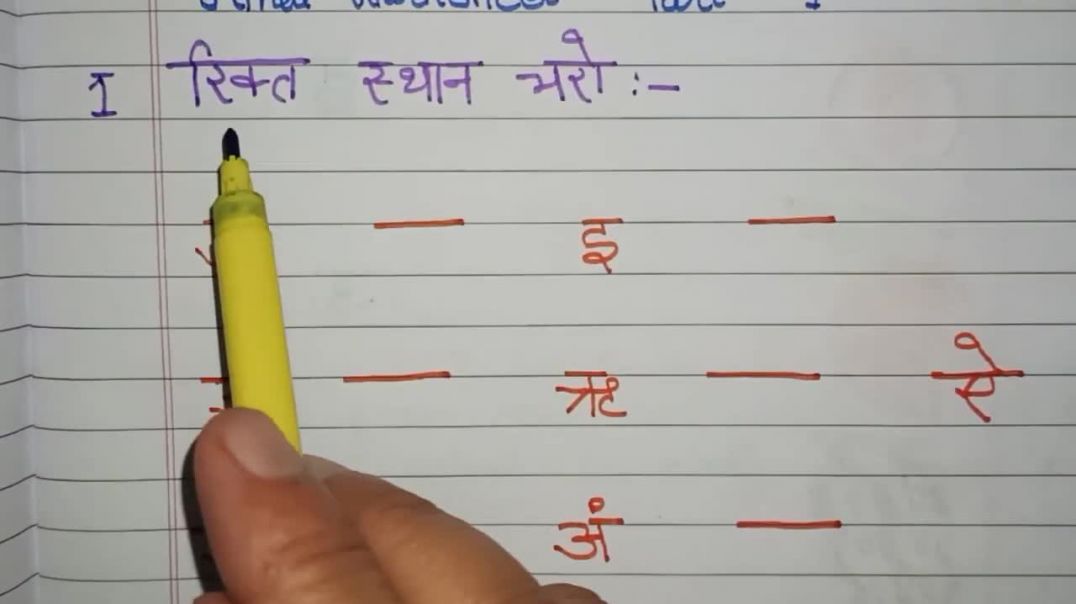 I रिक्त स्थान भरो :-
— इ —
— ऋ — ऐ
अं —